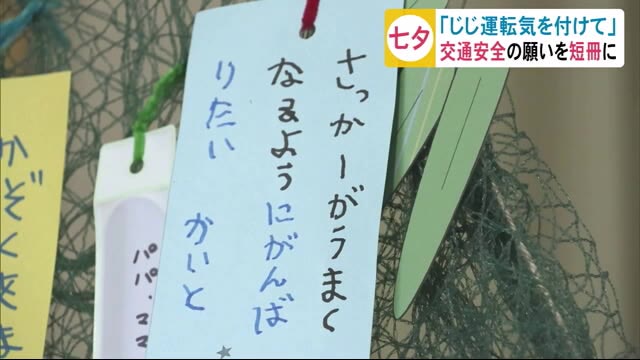 七夕
「じじ運転気を付けて」
交通安全の願いを短冊に
さっかーがうまく
なるようにがんば
りたい
かいと
パパ、ママ
かぞく